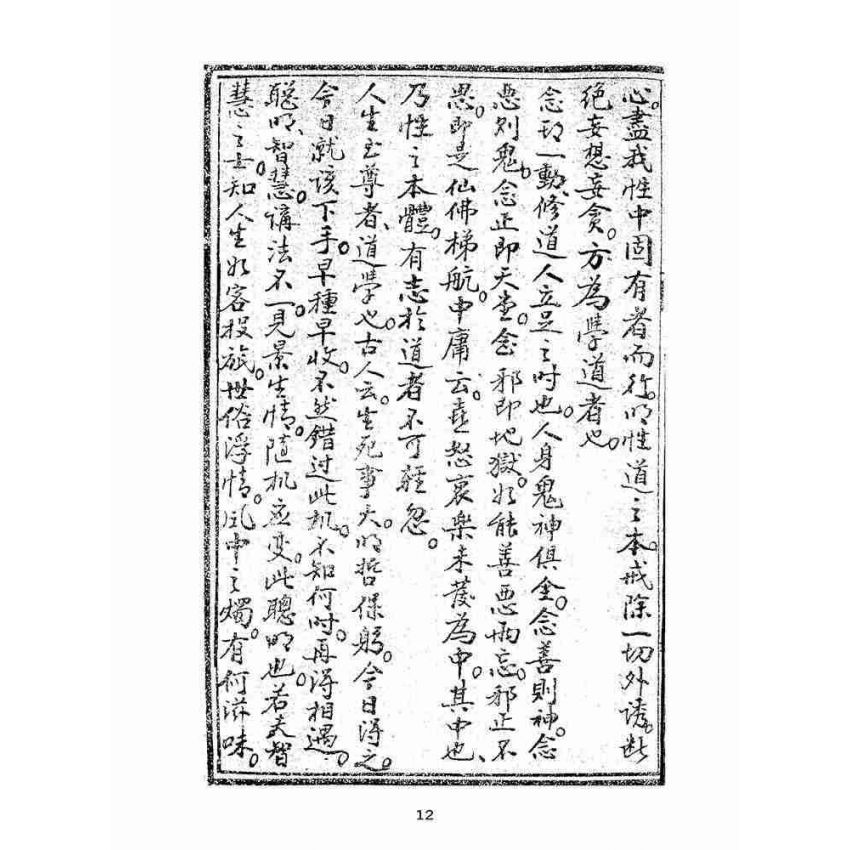 心。盡我性中固有者而行。明性道之本。戒除一切外誘。斷
絕妄想妄貪。方為學道者也。
念頭一動、修道人立足之时也。人身鬼神俱全。念善則神。念
惡則鬼。念正即天堂。念邪即地獄。如能善惡兩忘。邪正不
思。即是仙佛梯航。中庸云。喜怒哀樂未發為中。其中也、
乃性之本體。有志於道者不可輕忽。
人生至尊者、道學也。古人云。生死事大。明哲保躬。今日得之。
今日就該下手。早種早收。不然錯过此机。不知何时。再得相遇。
聪明、智慧。講法不一。見景生情。隨机应变。此聰明也。若夫智
慧之士。知人生如客投旅。世俗浮情。風中之燭。有何滋味。
12